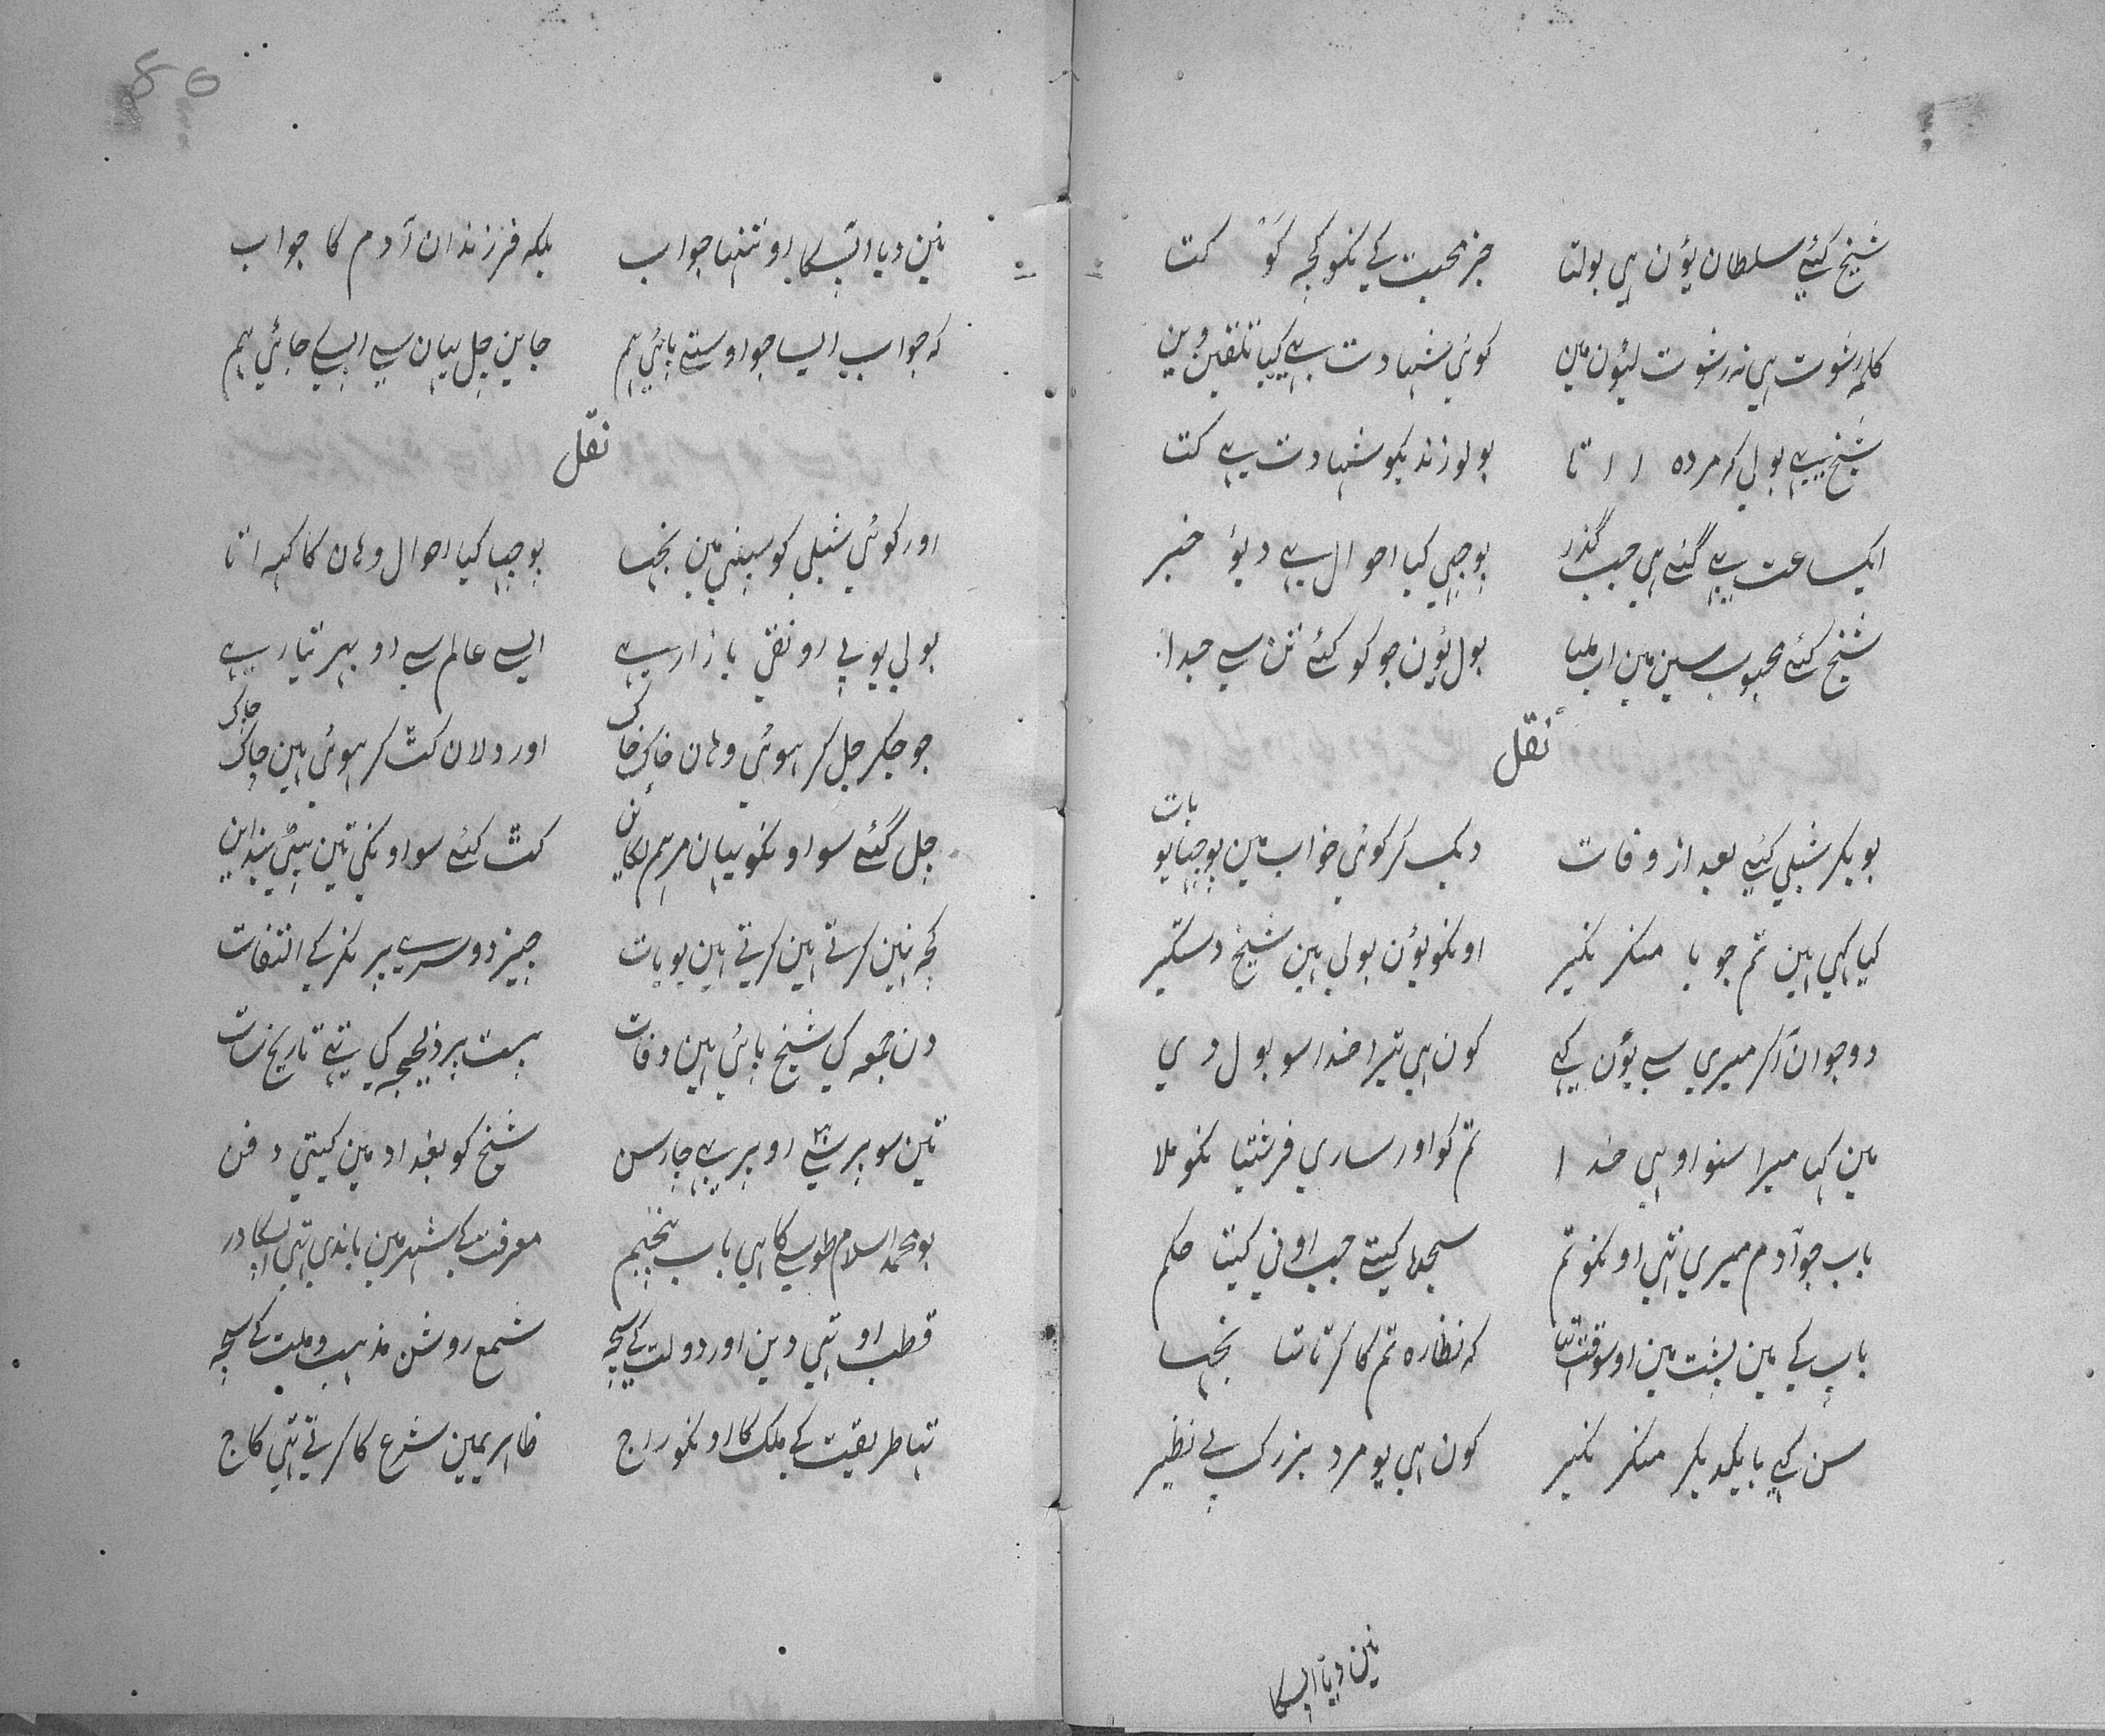 شیخ کئے سلطان یؤن ہی بولتا جز محبت کے نکو کچہ کت
کلمہ رشوت ہی نہ رشوت لیؤن مین کوئی شہادت سے کیا تلقین دین
شیخ سے بولی کہ مردہ تا بولو زندیکو شہادت سے کت
ایکساعت سے گئے ہی جب گذر پوچہی کیا احوال ہے دیؤ خبر
شیخ کئے محبوب سین مین اب ملیا بول یؤن جو کو کئے تن سے جدا
نقل
بوبکر شبلی کئے بعد از وفات دیک کر کوئی خواب مین پوچہا یو بات
کیا کہی ہین تم جوبا منکر نکیر اونکو یؤن بولی ہین شیخ دستگیر
دو جوان آکر میری سے یؤن کہے کون ہی تیرا خدا سو بول دی
مین کہا میرا سنو او ہی خدا تم کو اور ساری فرشتیا نکو ملا
باب جو آدم میری تہی اونکو تم سجدہا کیتے جب اونی کیتا حکم
باپ کے مین پشت مین اوسوقت تہا کہ نظارہ تم کا کرتا تہا بجہا
سن کہے بایکدیگر منکر نکیر کون ہی یو مرد بزرگ بے نظیر
نین دیا ایسکا
50
نین دیا ایسکا او تنہا جواب بلکہ فرزندان آدم کا جواب
کہ جواب ایسا جو اوستے پائی ہم جاین چل یہان سے ایسے جائی ہم
نقل
اور کوئی شبلی کو سپنی مین بجہا پوچہا کیا احوال وہان کا کہہ اتا
بولی یو بے رونقی بازار ہے ایسے عالم سے او بہر تیار ہے
جو جکر جل کر ہوئی وہان خاک خاک اور دلان کٹ کر ہوئی ہین چاک چاک
جل گئے سو اونکو یہان مرہم لگاین کٹ کئے سو اونکی تین پٹی بنداین
کچہ نین کرتے ہین کرتے ہین یو بات چیز دوسرے پر نکر کے التفات
دن جمعہ کی شیخ پائی ہین وفات بست پر ذیحجہ کی تہے تاریخ سات
تین سو پر او پر ہے چار سن شیخ کو بغداد مین کیتی دفن
بو محمد اسلام طوسے کا ہی باب پنجہم معرفت کے شہر مین باندی تہی ایسکا در
قطب او تہی دین اور دولت کے سچہ شمع روشن مذہب و ملت کے سچہ
تہا طریقت کے ملک کا اونکو راج ظاہر یمین شرع کا کرتے تہی کاج